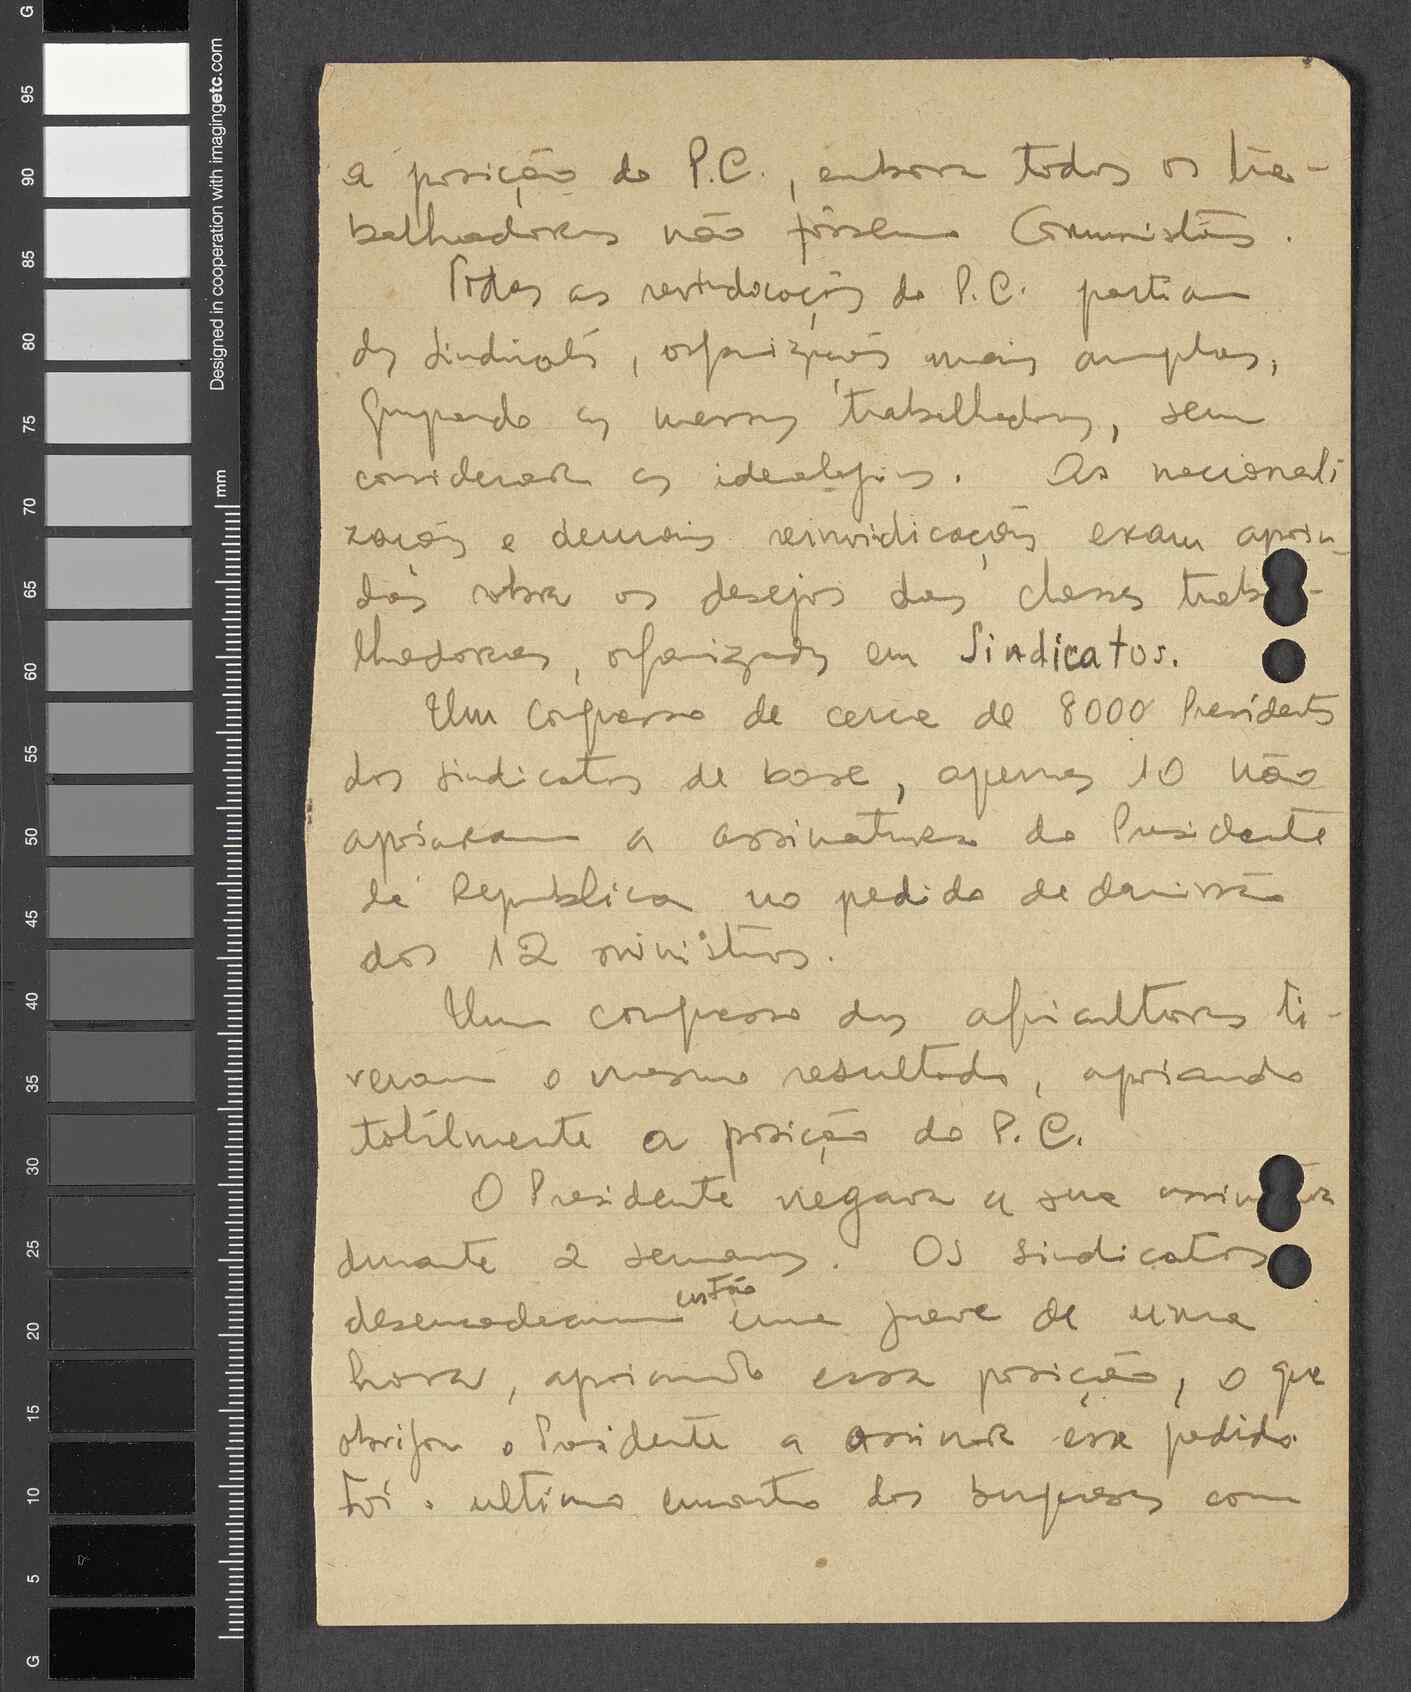 a posição do P.C., embora todos os tra-
balhadores não fôssem Comunistas.
Todas as reivindicações do P.C. partiam
dos sindicatos, organizações mais amplas,
grupando as massas trabalhadoras, sem
considerar as ideologias. As nacionali
zações e demais reinvidicações eram apoia-
das sobre os desejos das classes traba-
lhadoras, organizadas em Sindicatos.
Um Congresso de cerca de 8000 Presidentes
dos sindicatos de base, apenas 10 não
apoiaram a assinatura do Presidente
da Republica no pedido de demissão
dos 12 ministros.
Um congresso dos agricultores ti-
veram o mesmo resultado, apoiando
totálmente a posição do P.C.
O Presidente negara a sua assinatura
durante 2 semanas. Os sindicatos
então
desencadearam uma greve de uma
hora, apoiando essa posição, o que
obrigou o Presidente a assinar êsse pedido.
Foi o ultimo encontro dos burgueses com
G
95
90
85
80
75
70
65
60
55
50
45
40
35
30
25
20
15
10
5
G
Designed in cooperation with imagingetc.com
mm